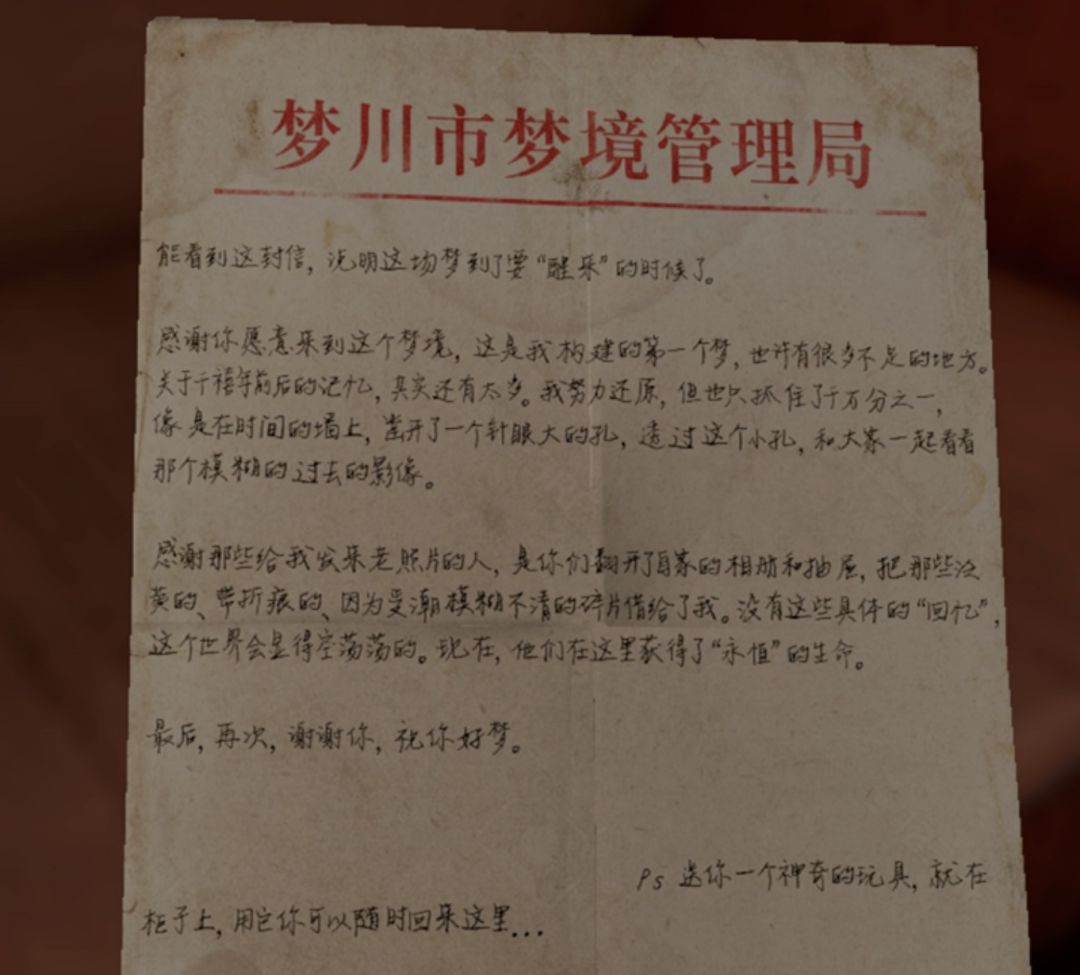 梦川市梦境管理局
能看到这封信，说明这场梦到了要“醒来”的时候了。
感谢你愿意来到这个梦境，这是我构建的第一个梦，也许有很多不足的地方。
关于千禧年前后的记忆，其实还有太多。我努力还原，但也只抓住了千万分之一，
像是在时间的墙上，凿开了一个针眼大的孔，透过这个小孔，和大家一起看看
那个模糊的过去的影像。
感谢那些给我发来老照片的人，是你们翻开了自家的相册和抽屉，把那些泛
黄的、带折痕的、因为受潮模糊不清的碎片借给了我。没有这些具体的“回忆”，
这个世界会显得空荡荡的。现在，他们在这里获得了“永恒”的生命。
最后，再次，谢谢你，祝你好梦。
Ps 送你一个神奇的玩具，就在
柜子上，用它你可以随时回来这里...